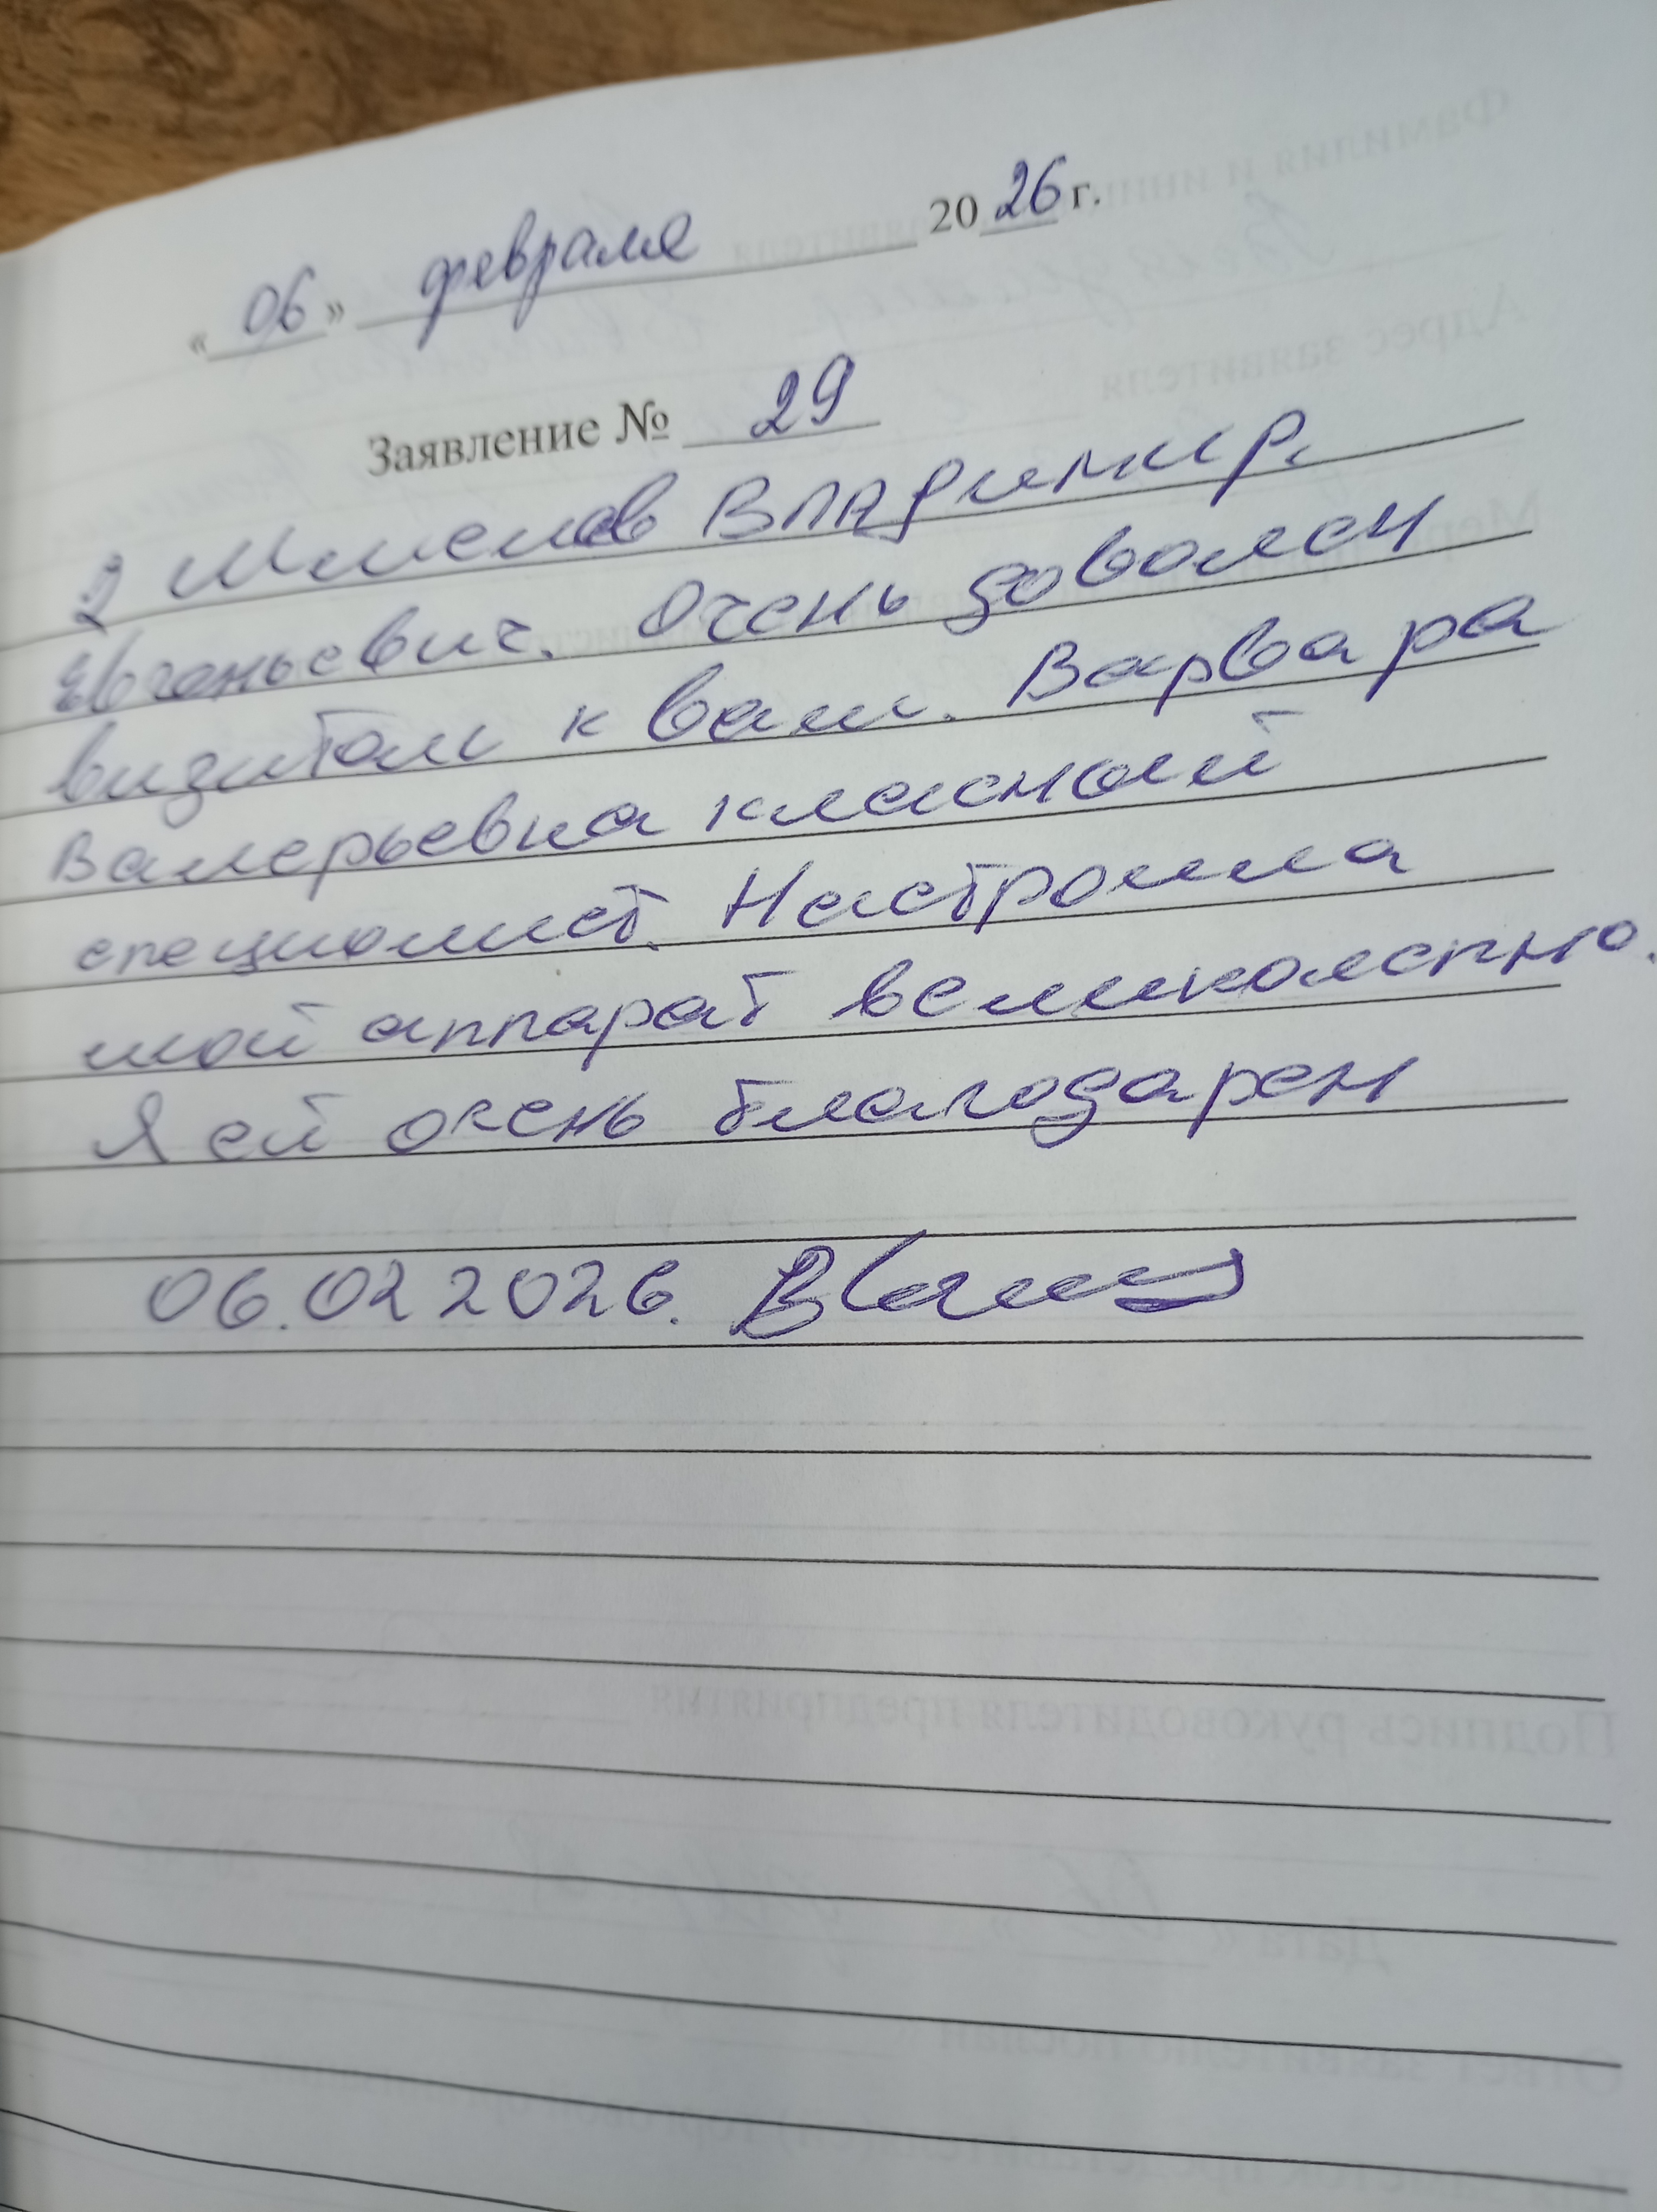 « 06 » февраля 20 26 г.
Заявление № 29
Владимир.
Евгеньевич. Очень доволен
визитом к вам. Варвара
Валерьевна класный
специалист. Настроила
мой аппарат великолепно.
Я ей очень благодарен
06.02 2026.